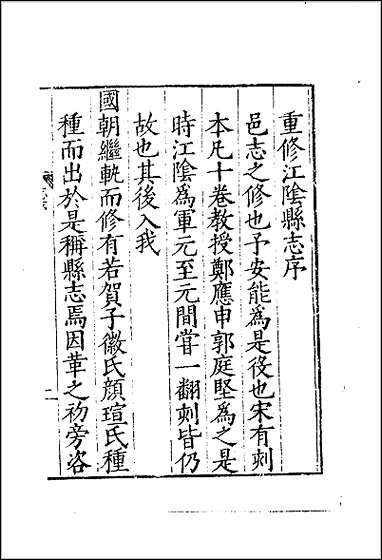 重修江陰縣志序
邑志之修也予安能爲是役也宋有刻
本凡十卷教授鄭應申郭庭堅爲之是
時江陰爲軍元至元間嘗一翻刻皆仍
故也其後入我
國朝繼軌而修有若賀子徽氏顏瑄氏種
種而出於是稱縣志焉因革之初旁咨
二